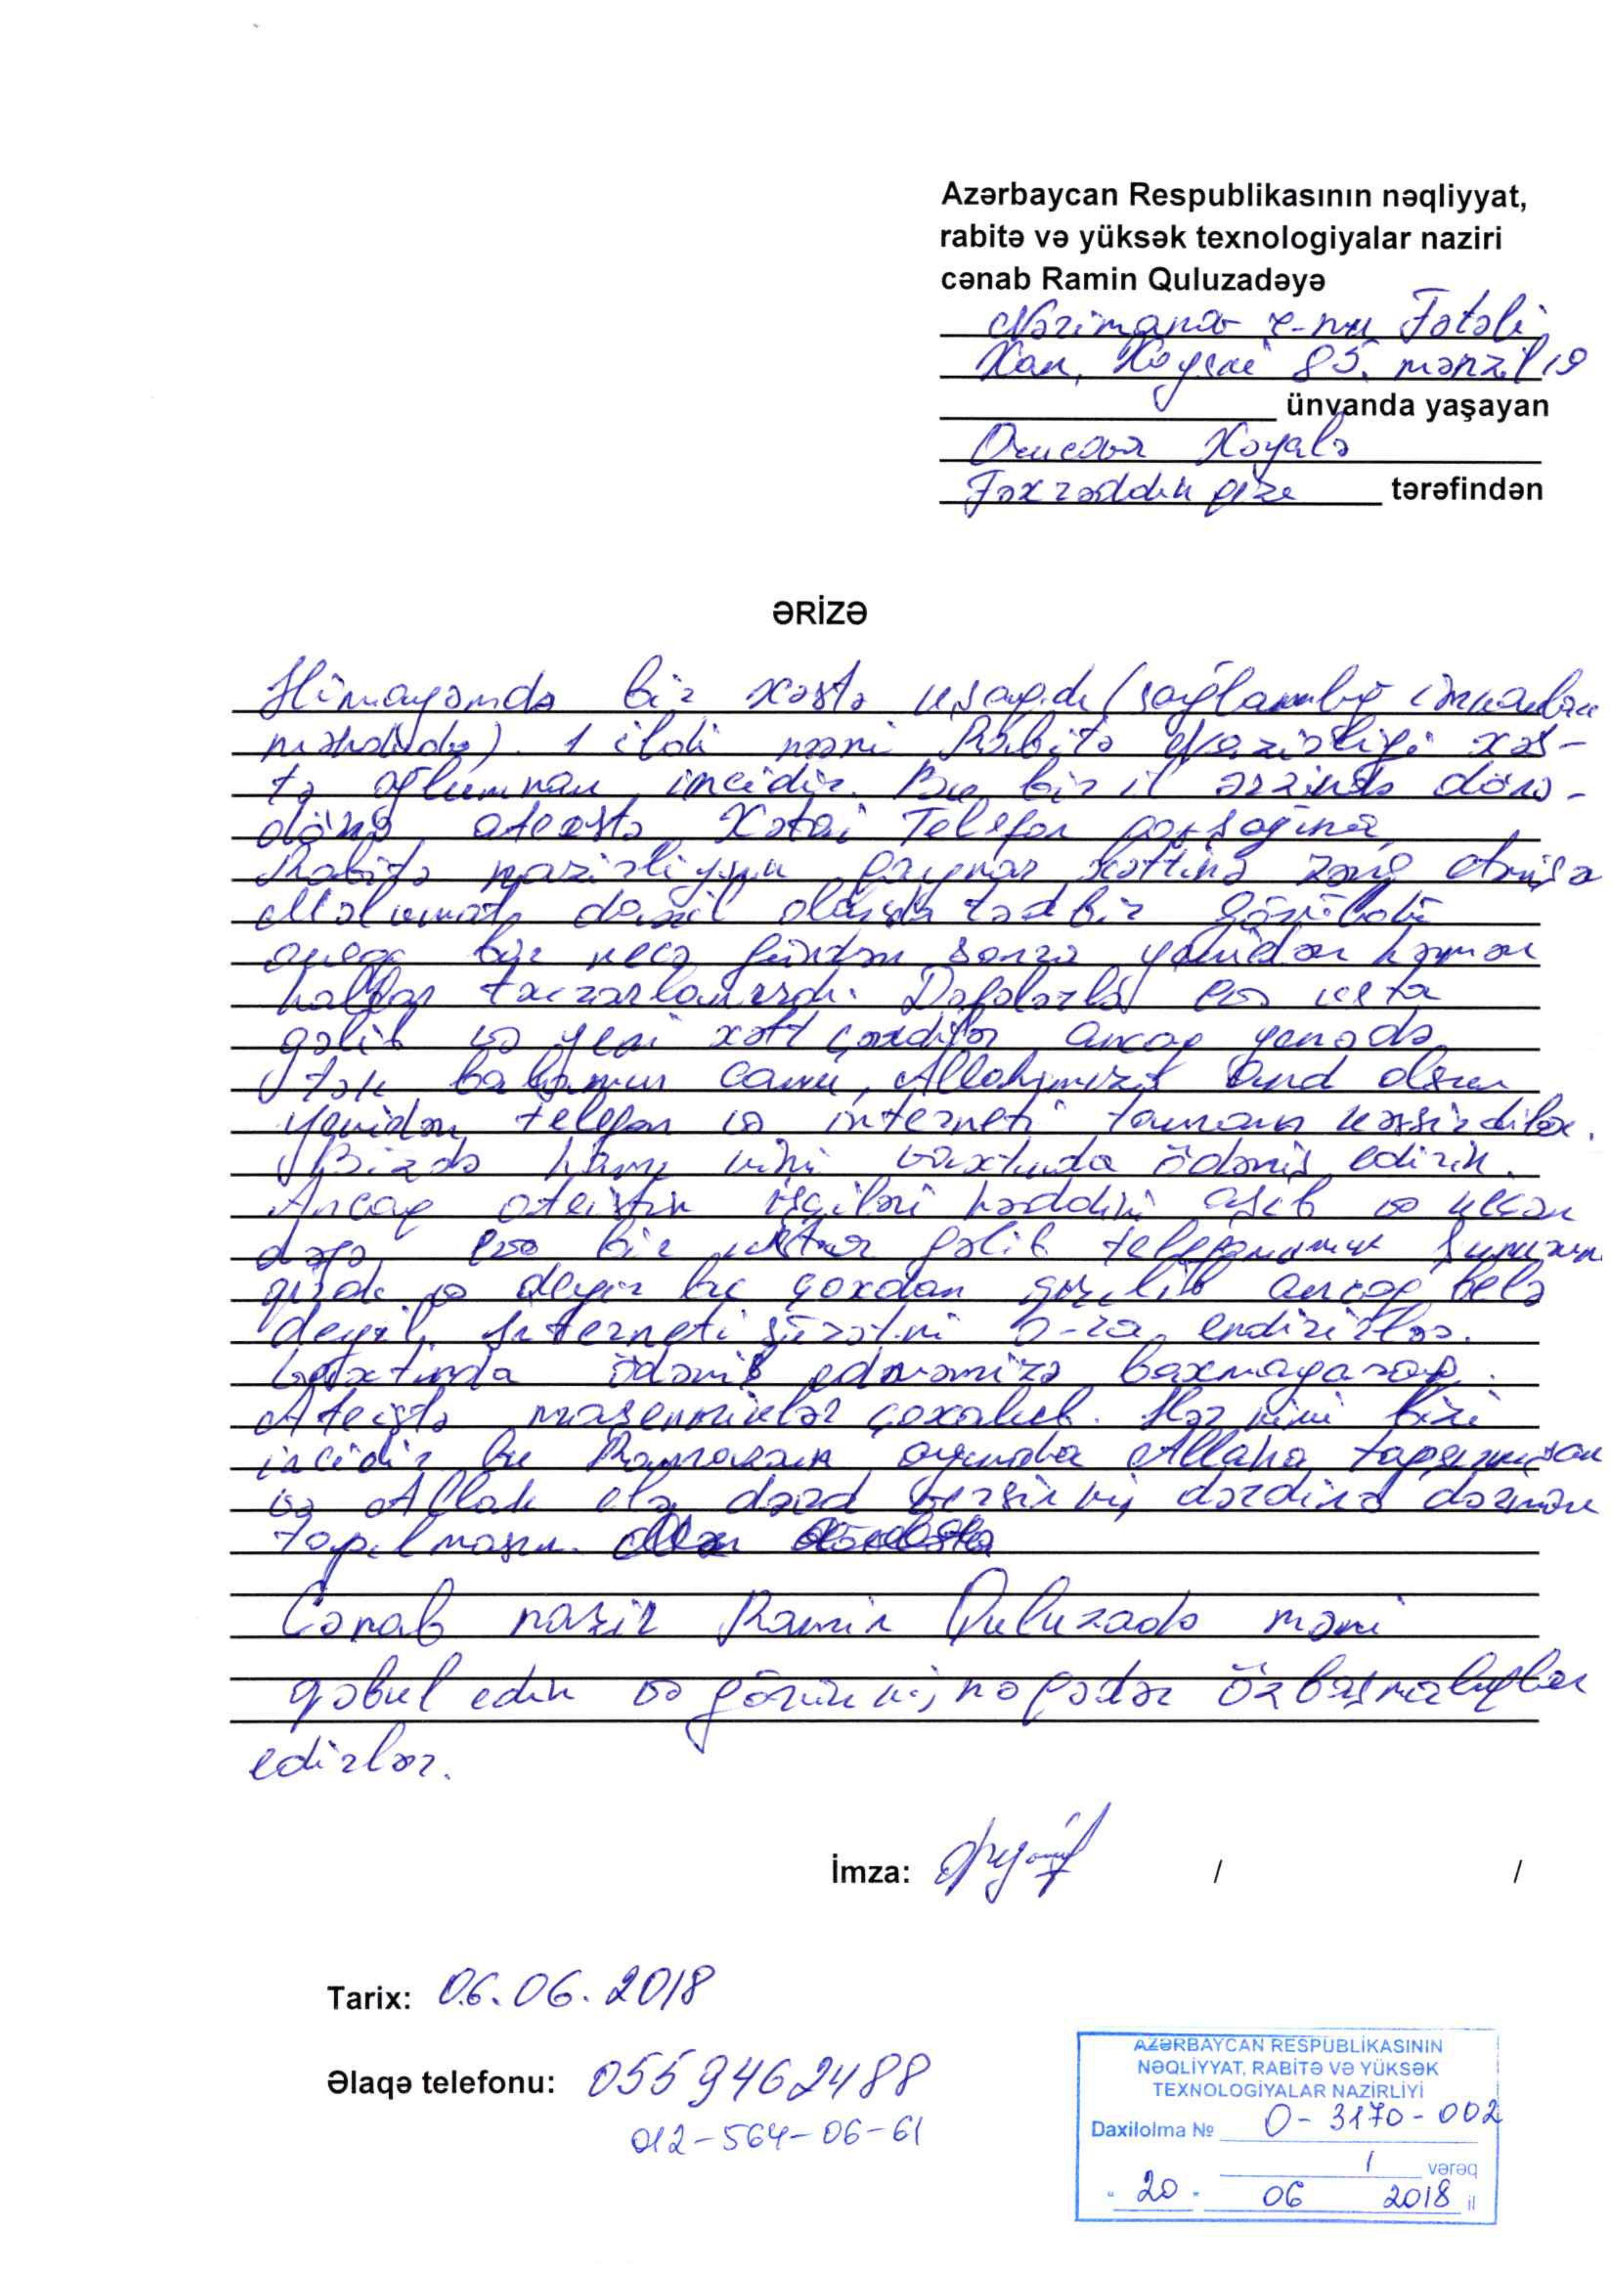 Azərbaycan Respublikasının nəqliyyat,
rabitə və yüksək texnologiyalar naziri
cənab Ramin Quluzadəyə
Nərimanov r-nu Fətəli
Xan Xoyski 85. mənzil 19
ünvanda yaşayan
Orucova Xəyalə
Fəxrəddin qızı tərəfindən
ƏRİZƏ
Himayəmdə bir xəstə uşaqdı (sağlamlığ imkanları
məhduddu). 1 ildi məni Rabitə Nazirliyi xəs-
tə oğlumnan incidir. Bu bir il ərzində dönə-
dönə ateəstə Xətai Telefon qovşağına,
Rabitə nazirliyinin qaynar xəttinə zəng etmişə
Məlumatı daxil olanda tədbir görülübdü
bir neçə gündən sonra yenidən həmən
hallar təkrarlanırdı. Dəfələrlə evə usta
gəlib və yeni xətt çəkdilər ancaq yenədə
tək balamın canı, Allahımıza and olsun
yenidən telefon və interneti tamam kəsirdilər.
Bizdə hamı kimi vaxtında ödəniş edirik.
Ancaq ateistin işçiləri həddini aşıb və keçən
dəfə evə bir ustar gəlib telefonumun şunurun
qırdı və deyir bu çoxdan qırılıb ancaq belə
deyil. İnterneti sürətni 0-ra endirirlər.
Vaxtında ödəniş edməmizə baxmayaraq.
Ateistə maşenniklər çoxalıb. Hər kimi bizi
incidir bu Ramazan ayında Allaha tapşırmışam
və Allah elə dərd versin ki, dərdinə dərman
tapılmasın.
Cənab nazir Ramin Quluzadə məni
qəbul edin və görün ki, nə qədər özbaşınalıqlar
edirlər.
İmza: / /
Tarix: 06.06.2018
Əlaqə telefonu: 0559462488
012-564-06-61
AZƏRBAYCAN RESPUBLİKASININ
NƏQLİYYAT, RABİTƏ VƏ YÜKSƏK
TEXNOLOGİYALAR NAZİRLİYİ
Daxilolma № O-3170-002
1 vərəq
"20" 06 2018 il